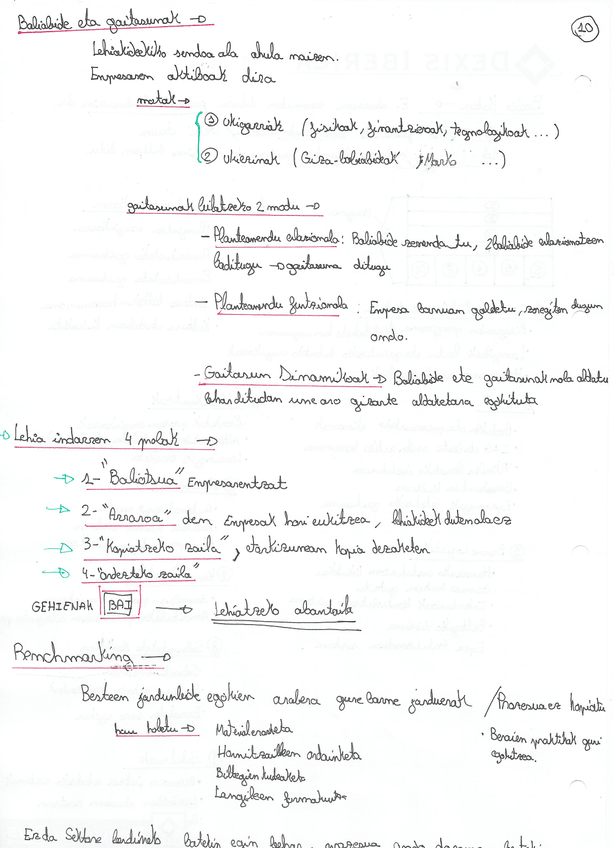 10
Baliabide eta gaitasunak →
Lehiakidekiko sendoa ala ahula naizen.
Enpresaren aktiboak dira
motak →
① Ukigarriak (fisikoak, finantzieroak, teknologikoak ...)
② Ukiezinak (Giza-baliabideak, Marka ...)
gaitasunak bilatzeko 2 modu →
- Planteamendu
: Baliabide zerrenda tu, 2 baliabide
baditugu → gaitasuna ditugu
- Planteamendu funtzionala : Enpresa barruan galdetu, zer egiten dugun
ondo.
- Gaitasun Dinamikoak → Baliabide eta gaitasunak nola aldatu
behar ditudan une oro gizarte aldaketara egokituta
→ Lehia indarren 4 →
→ 1- "Baliotsua" Enpresarentzat
→ 2- "Arraroa" den Enpresak hori eukitzea, lehiakideek dutenalaez
→ 3- "Kopiatzeko zaila", etorkizunean kopia dezaketen
→ 4- "ordezteko zaila"
GEHIENAK BAI → Lehiatzeko abantaila
Benchmarking →
Besteen jardunbide egokien arabera gure barne jarduerak / Prozesua ez kopiatu
hau hobetu → Materialen
· Beraien praktikak guri
Hornitzaileen ordainketa
egokitzea.
Biltegien kudeaketa
Langileen formakuntza
Ez da Sektore berdineko batekin egin behar,